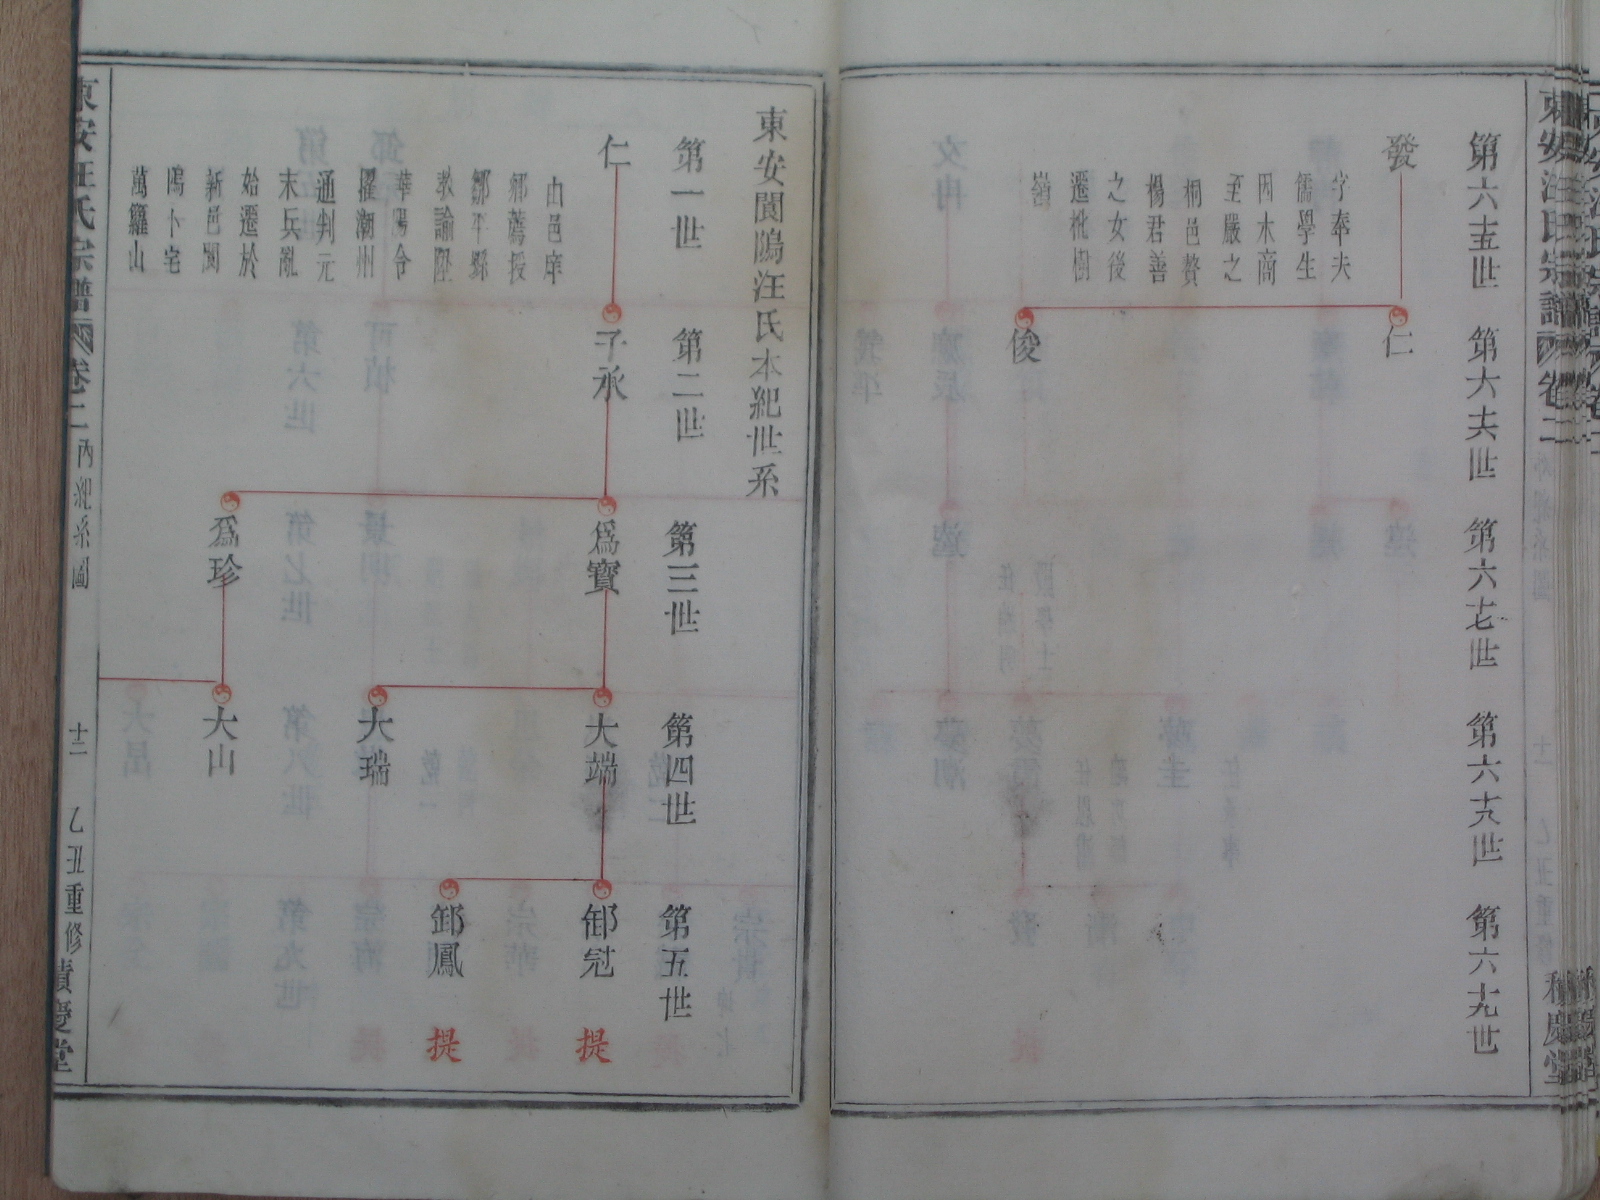 第六十五世
第六十六世
第六十七世
第六十八世
第六十九世
發
字奉夫
儒學生
因木商
至嚴之
桐邑贅
楊君善
之女後
遷枇樹
嶺
仁
俊
東安閬鴻汪氏本紀世系
第一世
第二世
第三世
第四世
第五世
仁
由邑庠
鄉薦授
鄒平縣
教諭陞
華陽令
擢潮州
通判元
末兵亂
始遷於
新邑閬
鴻卜宅
萬羅山
子承
為寶
為珍
大端
大瑞
大山
御冠
御鳳
提
提
東安汪氏宗譜
卷二
內紀系圖
十二
乙丑重修
積慶堂